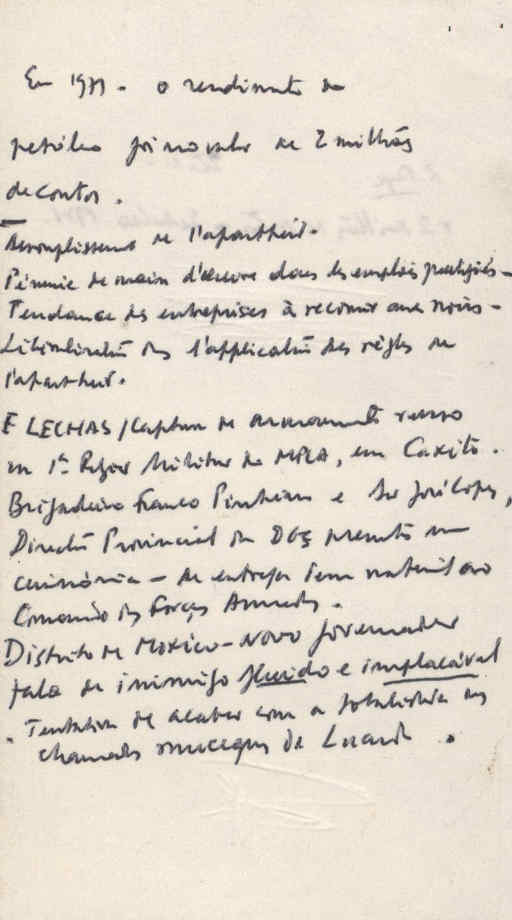 Em 1971 - o rendimento do
petróleo foi no valor de 2 milhões
de contos.
Assouplissement de l'apartheid.
Pénurie de main d'œuvre dans les emplois privilégiés -
Tendance des entreprises à recourir aux noirs -
Libéralisation ds l'application des règles de
l'apartheid.
FLECHAS / Captura de armamento russo
na 1ª Região Militar do MPLA, em Caxito.
Brigadeiro Franco Pinheiro e Dr José Lopes,
Director Provincial da DGS presentes na
cerimónia - de entrega desse material ao
Comando das Forças Armadas.
Distrito de Moxico - Novo governador
fala de inimigo fluido e implacável
- Tentativa de acabar com a totalidade dos
chamados musseques de Luanda.